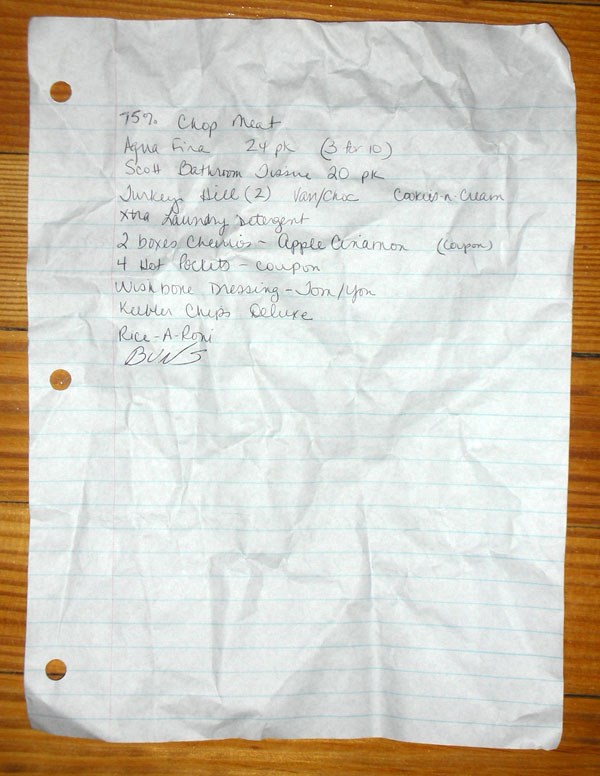 75% Chop Meat
Aqua Fina 24 pk (3 for 10)
Scott Bathroom Tissue 20 pk
Turkey Hill (2) Van/Choc Cookies-n-Cream
Xtra Laundry Detergent
2 boxes Cheerios - Apple Cinnamon (Coupon)
4 Hot Pockets - coupon
Wishbone Dressing - Tom/
Keebler Chips Deluxe
Rice-A-Roni
BUNS